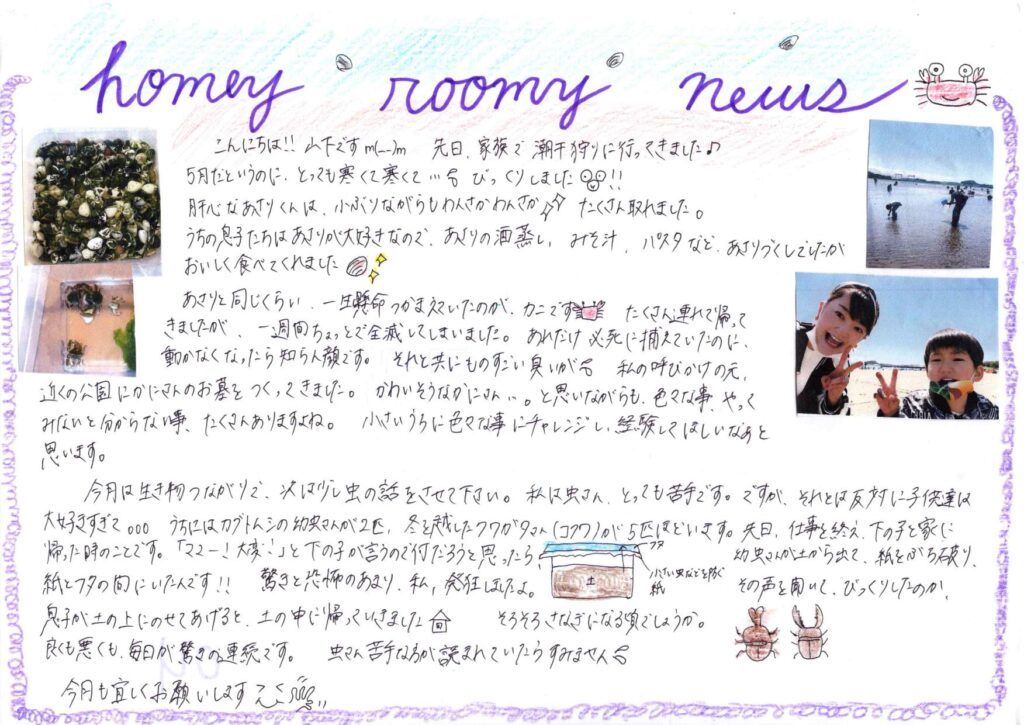 homey roomy news
こんにちは!! 山下ですm(__)m 先日、家族で潮干狩りに行ってきました♪
5月だというのに、とっても寒くて寒くて… びっくりしました!!
肝心なあさりくんは、小ぶりながらもわんさかわんさか たくさん取れました。
うちの息子たちはあさりが大好きなので、あさりの酒蒸し、みそ汁、パスタなど、あさりづくしでしたが
おいしく食べてくれました
あさりと同じくらい、一生懸命つかまえていたのが、カニです たくさん連れて帰って
きましたが、一週間ちょっとで全滅してしまいました。あれだけ必死に捕えていたのに、
動かなくなったら知らん顔です。 それと共にものすごい臭いが 私の呼びかけの元、
近くの公園にかにさんのお墓をつくってきました。 かわいそうなかにさん…。と思いながらも、色々な事、やって
みないと分からない事、たくさんありますよね。 小さいうちに色々な事にチャレンジし、経験してほしいなぁと
思います。
今月は生き物つながりで、次は少し虫の話をさせて下さい。 私は虫さん、とっても苦手です。ですが、それとは反対に子供達は
大好きすぎて。。。 うちにはカブトムシの幼虫さんが2匹、冬を越したクワガタさん(コクワ)が5匹ほどいます。先日、仕事を終え、下の子と家に
帰った時のことです。「ママー!大変!」と下の子が言うので何だろうと思ったら 幼虫さんが土から出て、紙をがち破り、
フタ
小さい虫などを防ぐ
紙
土
紙とフタの間にいたんです!! 驚きと恐怖のあまり、私、発狂しましたよ。 その声を聞いて、びっくりしたのか、
息子が土の上にのせてあげると、土の中に帰っていきました そろそろさなぎになる頃でしょうか。
良くも悪くも、毎日が驚きの連続です。 虫さん苦手な方が読まれていたらすみません
今月も宜しくお願いします